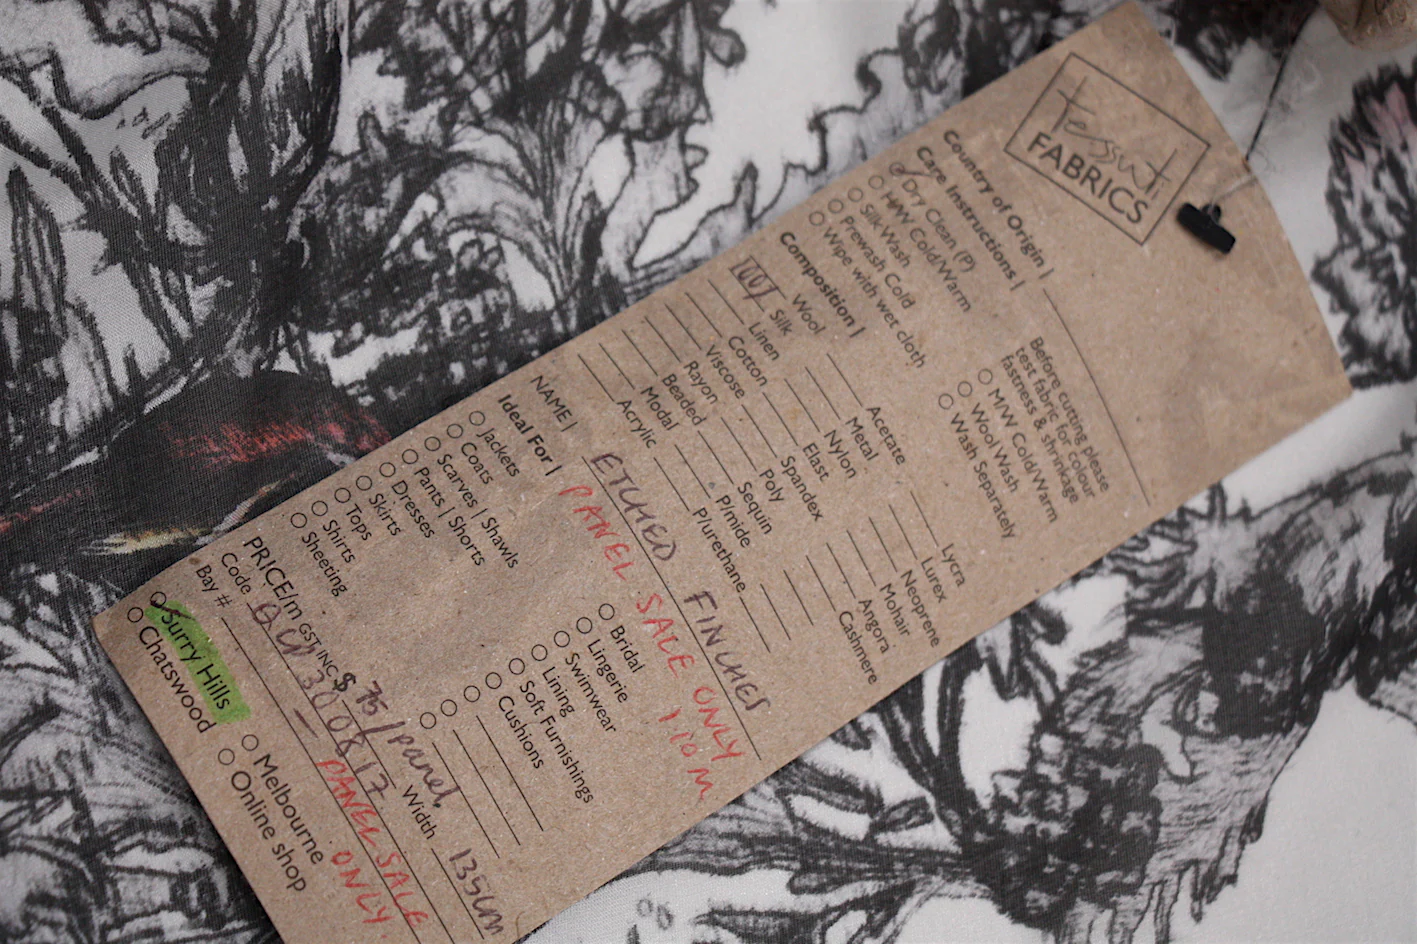 tessuti
FABRICS
Country of Origin |
Care Instructions |
Dry Clean (P)
H/W Cold/Warm
Silk Wash
Prewash Cold
Wipe with wet cloth
Before cutting please
test fabric for colour
fastness & shrinkage
M/W Cold/Warm
Wool Wash
Wash Separately
Composition |
Wool
100 Silk
Linen
Cotton
Viscose
Rayon
Beaded
Modal
Acrylic
Acetate
Metal
Nylon
Elast
Spandex
Poly
Sequin
P/mide
Plurethane
Lycra
Lurex
Neoprene
Mohair
Angora
Cashmere
NAME | ETCHED FINCHES
PANEL SALE ONLY
1.10 M.
Ideal For |
Jackets
Coats
Scarves | Shawls
Pants | Shorts
Dresses
Skirts
Tops
Shirts
Sheeting
Bridal
Lingerie
Swimwear
Lining
Soft Furnishings
Cushions
PRICE/m GST INC $ 75/panel Width 135cm
Code 300817
Bay # — PANEL SALE
ONLY.
Surry Hills
Chatswood
Melbourne
Online shop